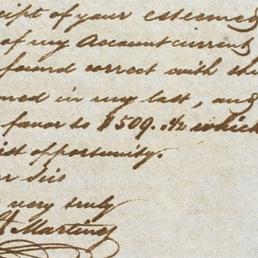 ceipt of your esteemed
of my Account current
found correct with the
med in my last, and
favor to $509. 1/2 which
opportunity.
Sir
very truly
Martinez